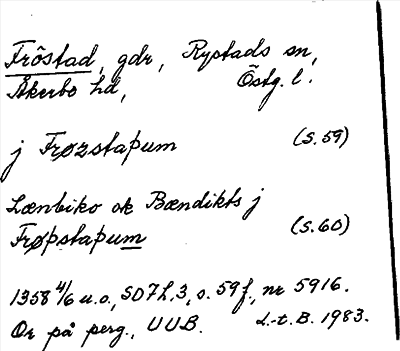 Fröstad, gdr, Rystads sn,
Åkerbo hd, Östg. l.
j Frøzstaþum (S. 59)
Lænbiko ok Bændikts j
Frøpstaþum (S. 60)
1358 4/6 u.o., SD 7 h. 3, s. 59 f., nr 5916.
Or på perg., UUB. L.-t. B. 1983.